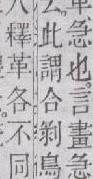 急也言畫急
么此謂合剝鳥
釋革各不同